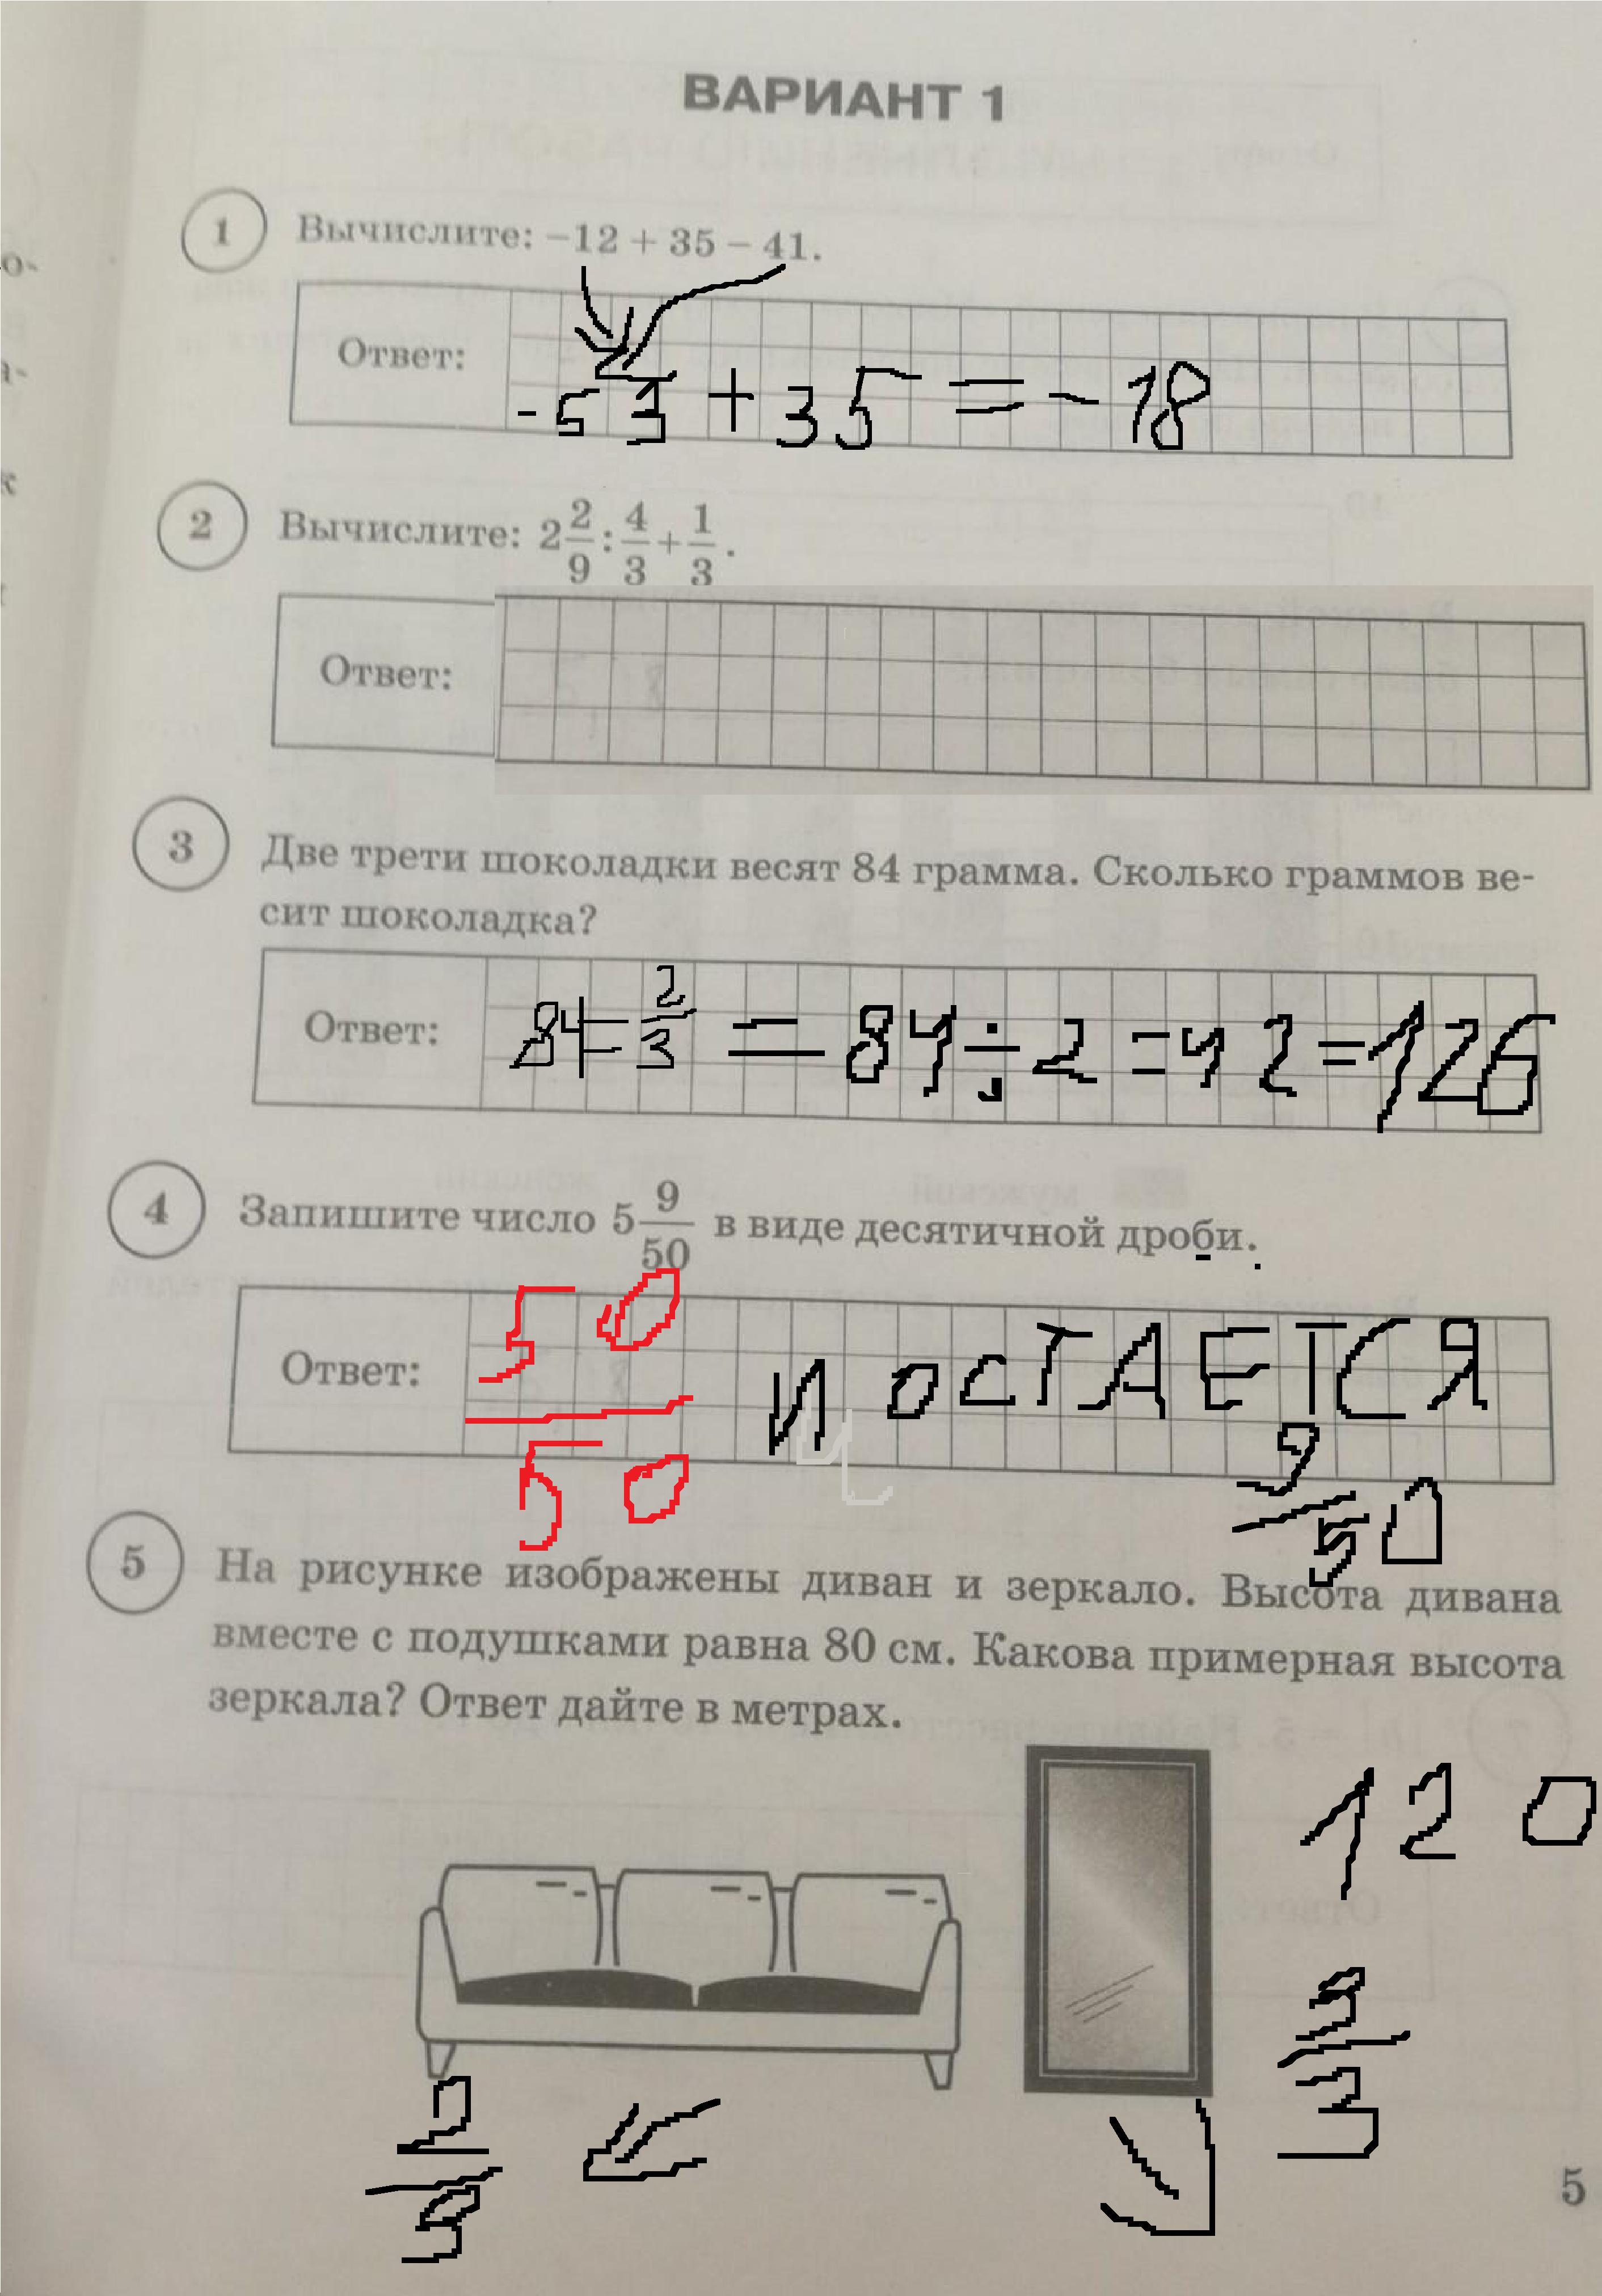 ВАРИАНТ 1
1 Вычислите: −12 + 35 − 41.
Ответ: -53 + 35 = - 18
2 Вычислите: 2 2/9 : 4/3 + 1/3.
Ответ:
3 Две трети шоколадки весят 84 грамма. Сколько граммов ве-
сит шоколадка?
Ответ: 84 = 2/3 = 84 ÷ 2 = 42 = 126
4 Запишите число 5 9/50 в виде десятичной дроби.
Ответ: 50/50 И ОСТАЕТСЯ
9/50
5 На рисунке изображены диван и зеркало. Высота дивана
вместе с подушками равна 80 см. Какова примерная высота
зеркала? Ответ дайте в метрах.
120
3/3
2/3
5